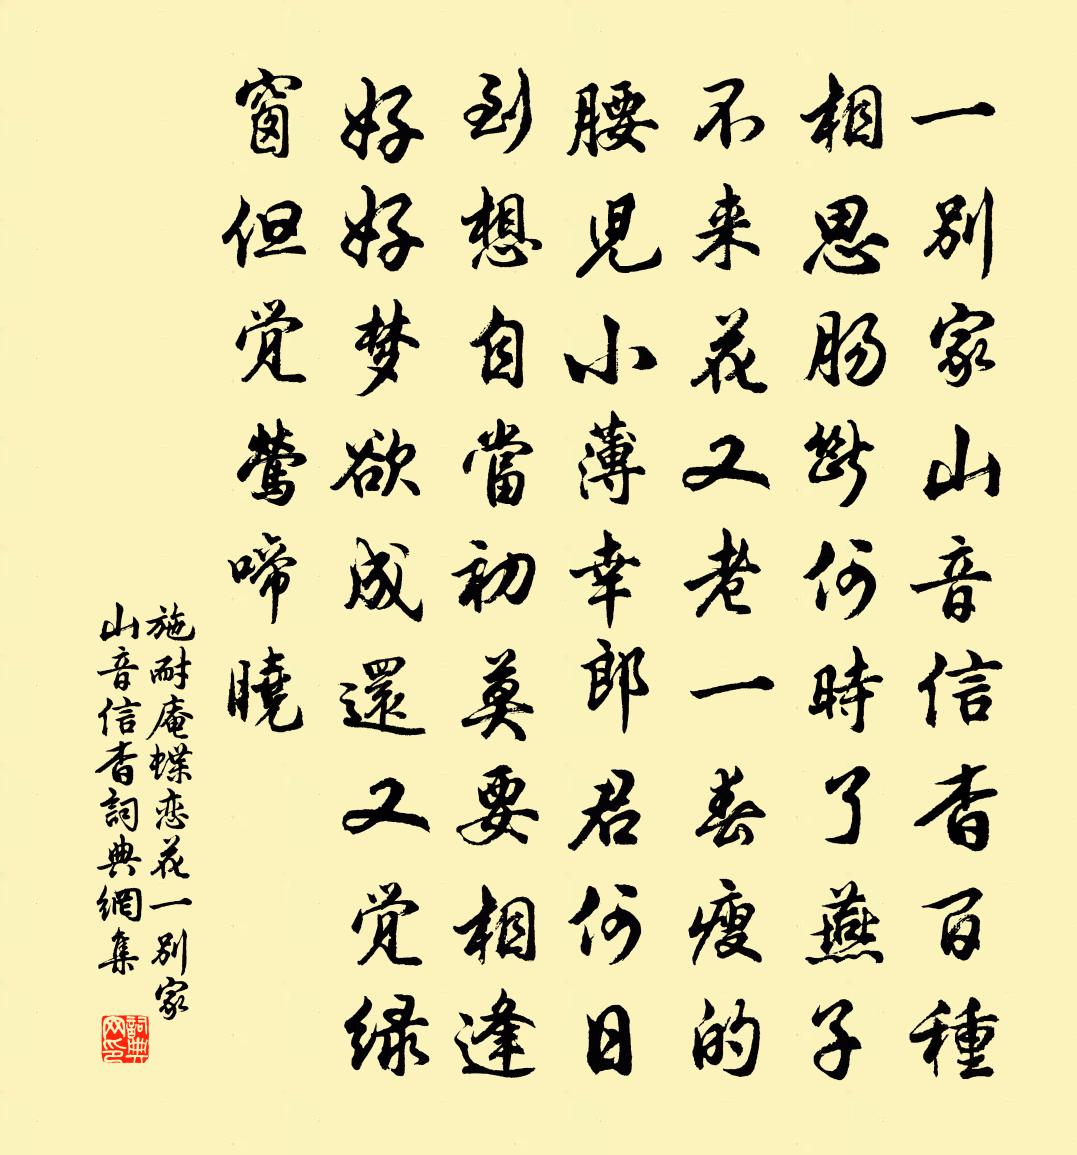 一别家山音信杳百種
相思肠断何時了燕子
不来花又老一春瘦的
腰児小薄幸郎君何日
到想自當初莫要相逢
好好好梦欲成還又觉绿
窗但觉鶯啼曉
施耐庵蝶恋花一别家
山音信杳詞典網集
詞典网印